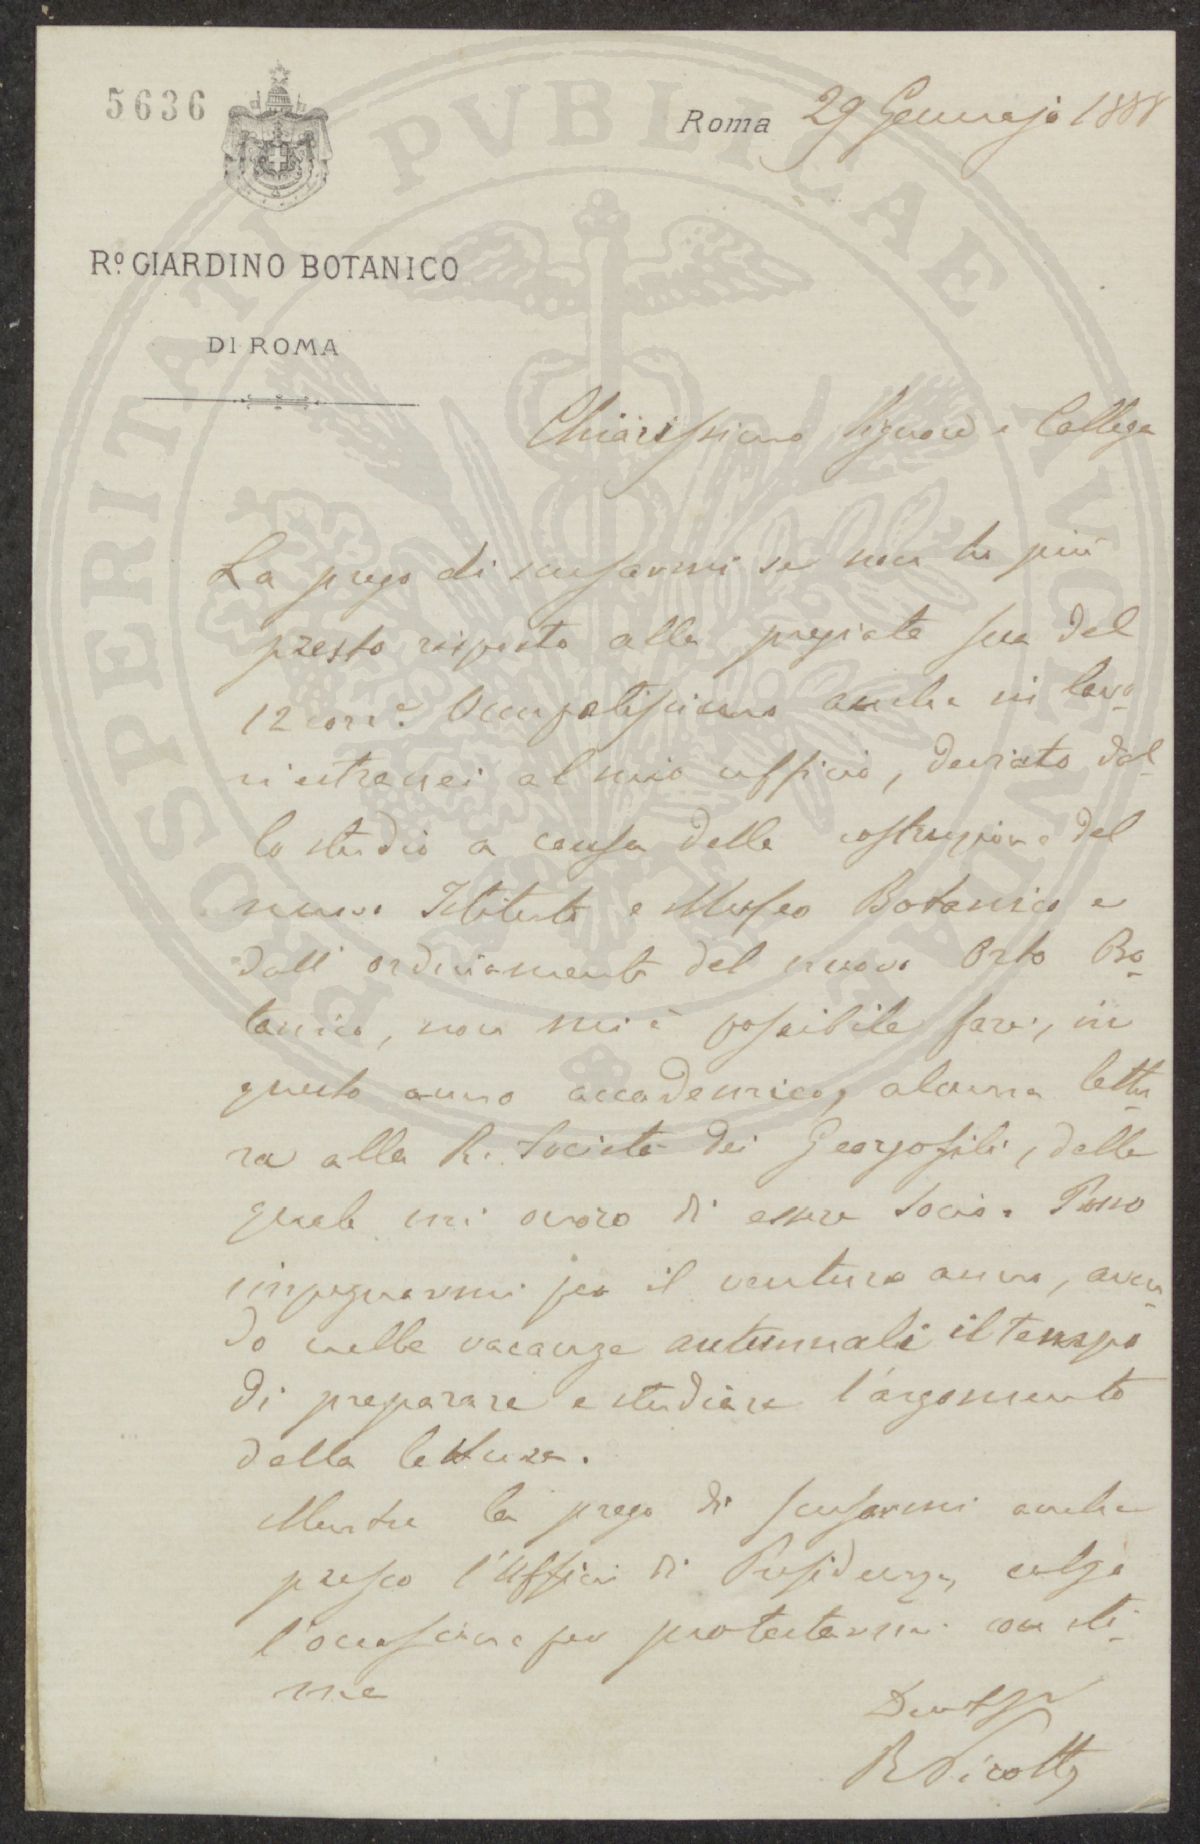 5636
Roma 29 Gennajo 1888
Rº GIARDINO BOTANICO
DI ROMA
Chiarissimo Signore e Collega
La prego di scusarmi se non ho più
presto risposto alla pregiata sua del
12 corre. Occupatissimo anche in lavo-
ri estranei al mio ufficio, deviato dal-
lo studio a causa della costruzione del
nuovo Istituto e Museo Botanico e
dall' ordinamento del nuovo Orto Bo-
tanico, non mi è possibile fare, in
questo anno accademico, alcuna lettu-
ra alla R. Società dei Georgofili, della
quale mi onoro di essere Socio. Posso
impegnarmi per il venturo anno, aven-
do nelle vacanze autunnali il tempo
di preparare e studiare l'argomento
della lettura.
Mentre la prego di scusarmi anche
presso l'Ufficio di Presidenza, colgo
l'occasione per protestarmi con sti-
ma
PROSPERITATI PVBLICAE AVGENDAE